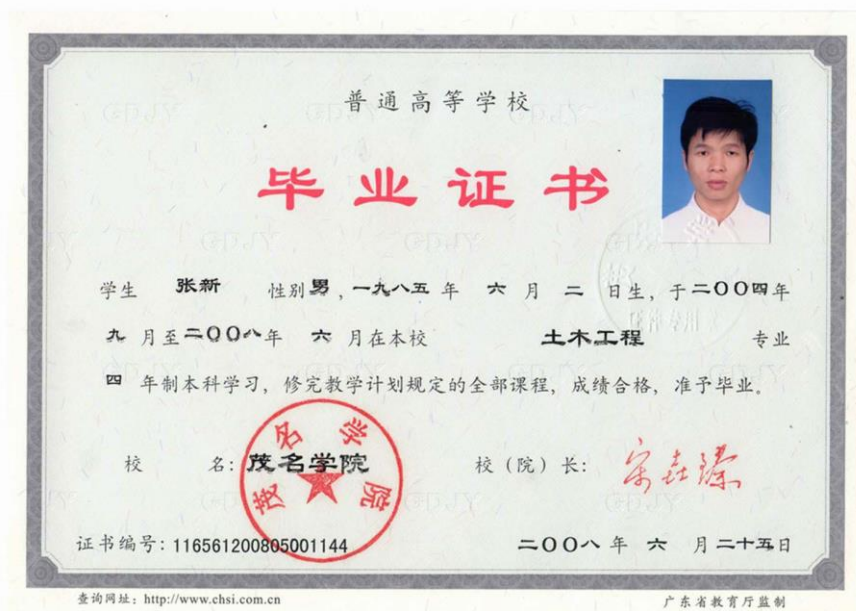 普通高等学校
毕业证书
学生 张新 性别男,一九八五年 六 月 二 日生,于二〇〇四年
九 月至二〇〇八年 六 月在本校 土木工程 专业
四 年制本科学习,修完教学计划规定的全部课程,成绩合格,准予毕业。
校 名:茂名学院 校(院)长:
茂名学院
证书编号:116561200805001144 二〇〇八 年 六 月 二十五日
查询网址:http://www.chsi.com.cn 广东省教育厅监制